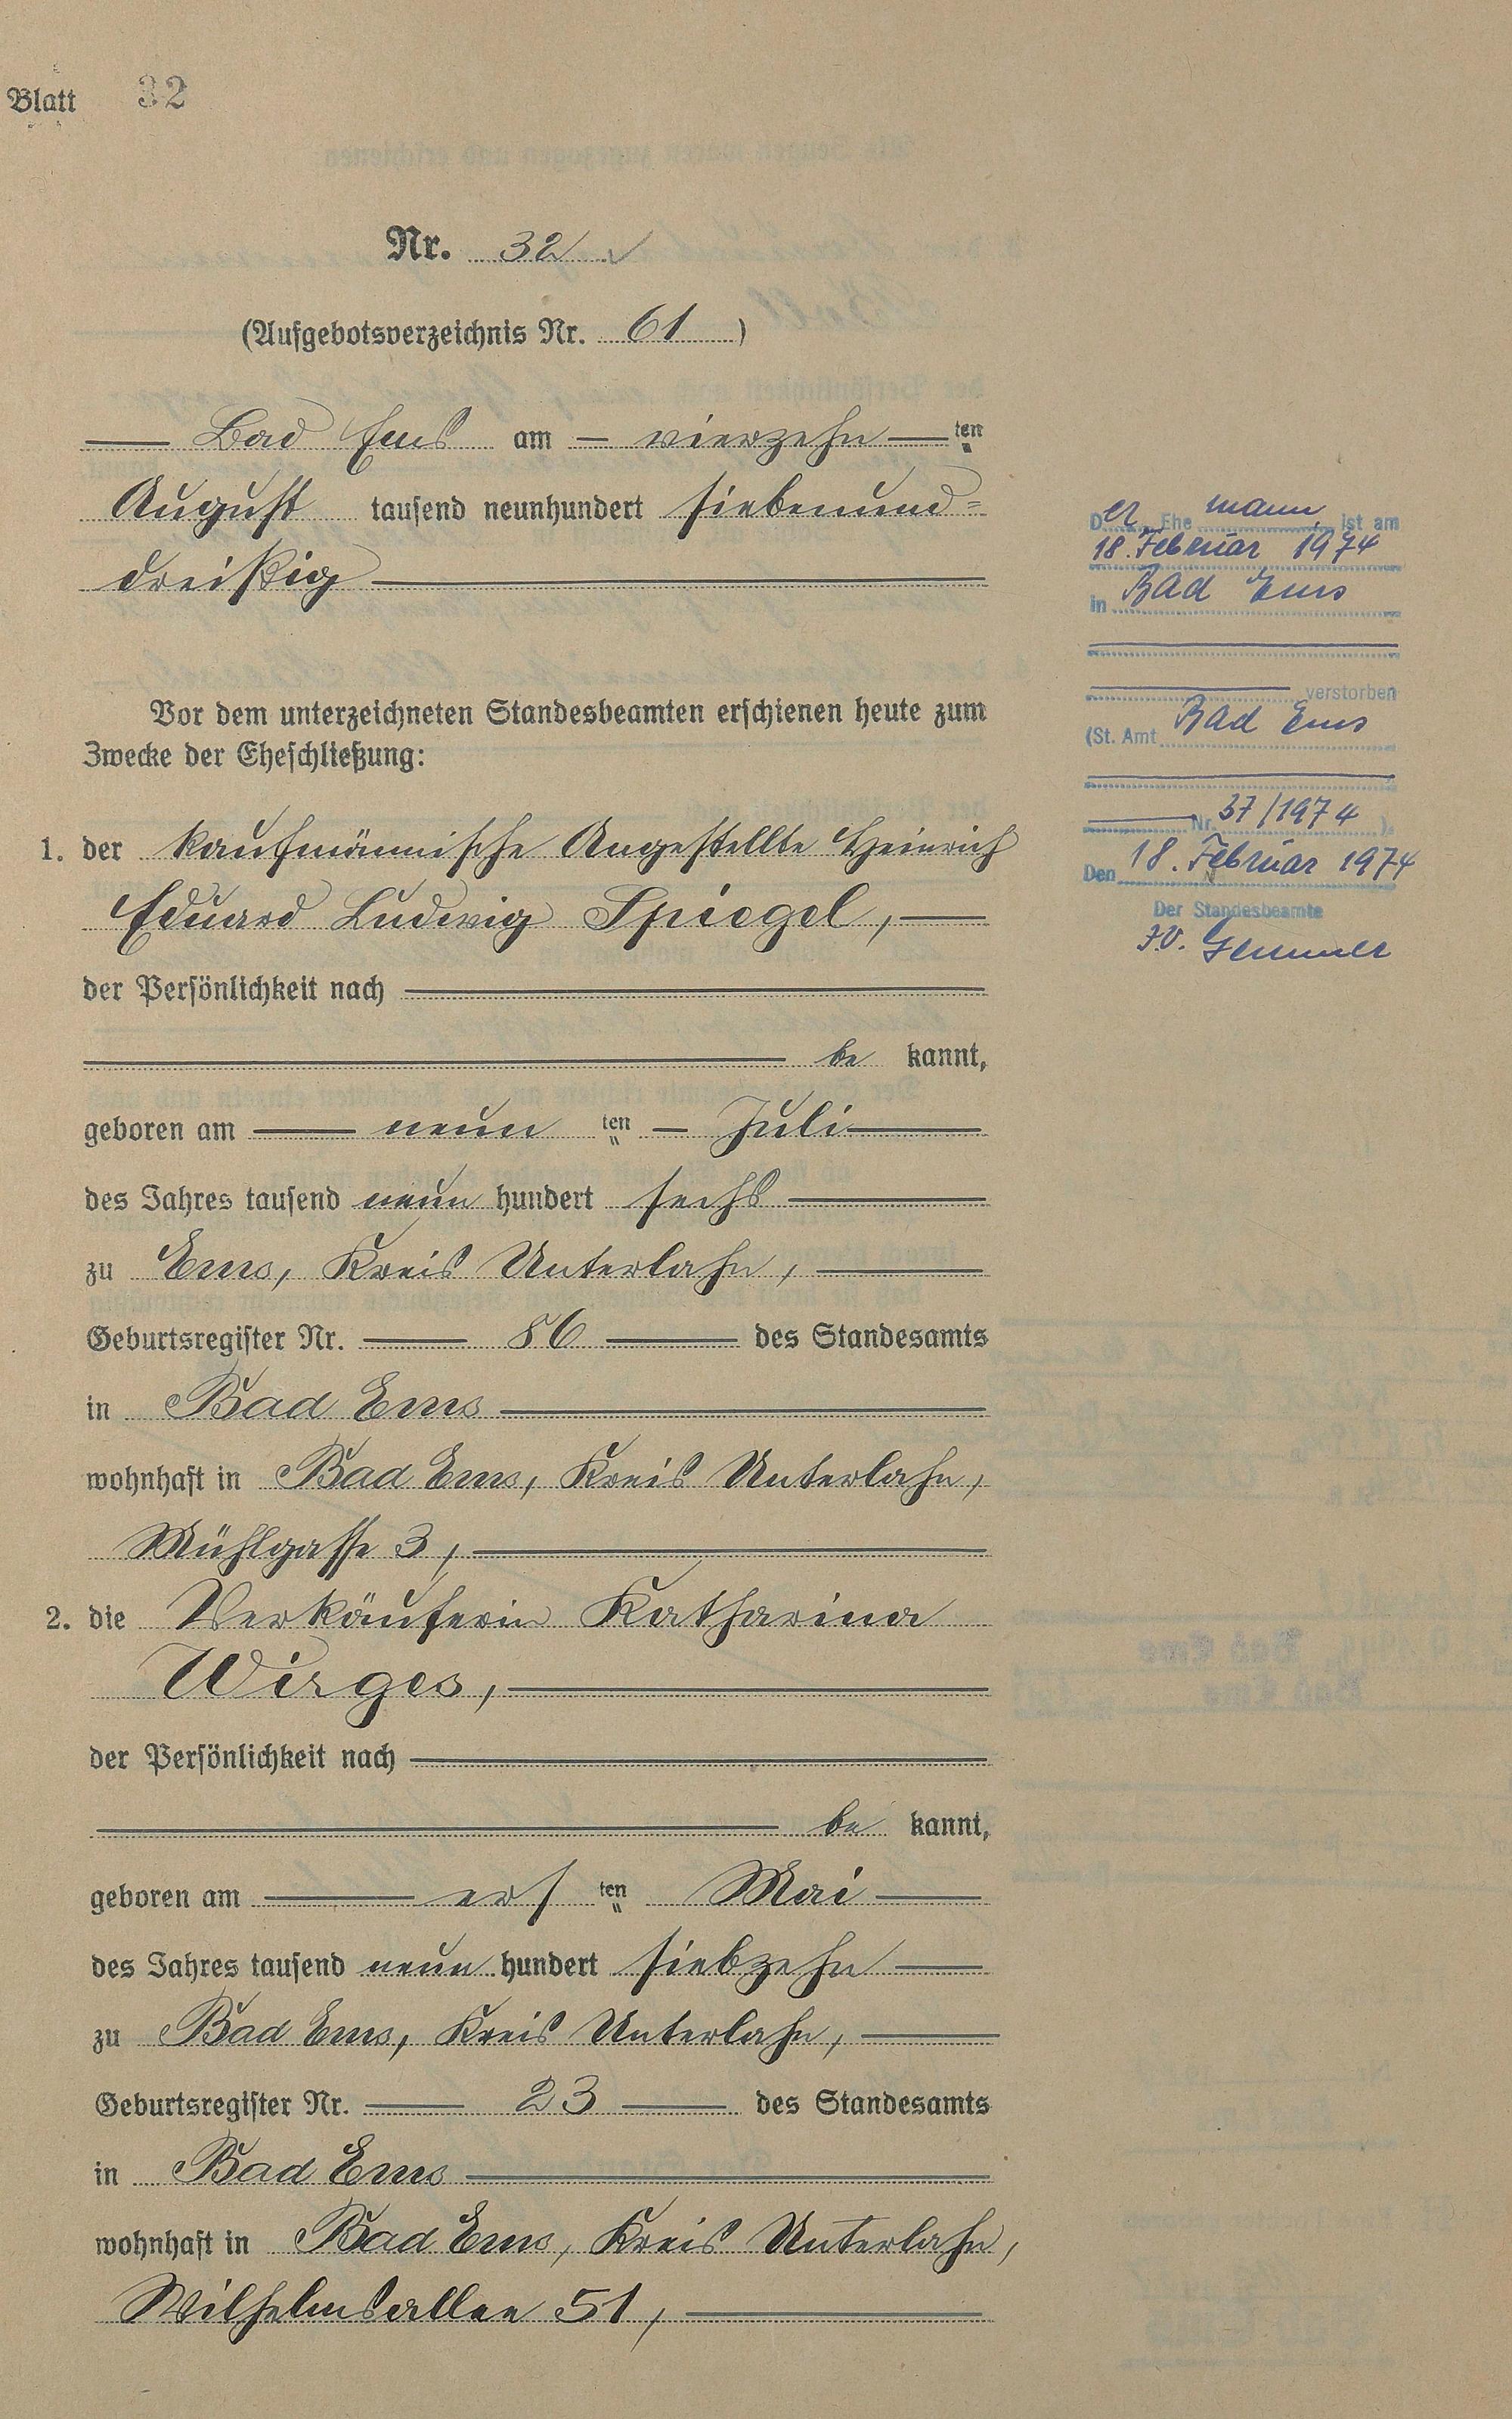 Blatt 32
Nr. 32
(Aufgebotsverzeichnis Nr. 61)
Bad Ems am vierzehn ten
August tausend neunhundert siebenund=
dreißig
Vor dem unterzeichneten Standesbeamten erschienen heute zum
Zwecke der Eheschließung:
1. der kaufmännische Angestellte Heinrich
Eduard Ludwig Spiegel,
der Persönlichkeit nach
be kannt,
geboren am neun ten Juli
des Jahres tausend neun hundert sechs
zu Ems, Kreis Unterlahn,
Geburtsregister Nr. 86 des Standesamts
in Bad Ems
wohnhaft in Bad Ems, Kreis Unterlahn,
Mühlgasse 3,
2. die Verkäuferin Katharina
Wirges,
der Persönlichkeit nach
be kannt,
geboren am ers ten Mai
des Jahres tausend neun hundert siebzehn
zu Bad Ems, Kreis Unterlahn,
Geburtsregister Nr. 23 des Standesamts
in Bad Ems
wohnhaft in Bad Ems, Kreis Unterlahn,
Wilhelmsallee 51,
Der Ehe mann, ist am
18. Februar 1974
in Bad Ems
verstorben
(St. Amt Bad Ems
Nr. 37/1974 ).
Den 18. Februar 1974
Der Standesbeamte
J.V.